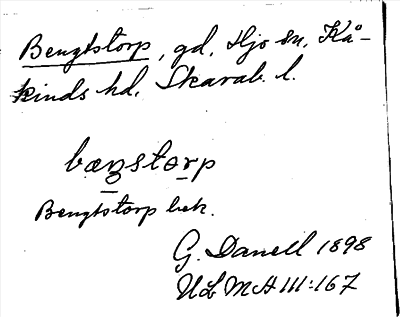 Bengtstorp, gd, Hjo sn, Kå-
kinds hd, Skarab. l.
bæŋstorp
Bengtstorp bek.
G. Danell 1898
ULMA 111:167